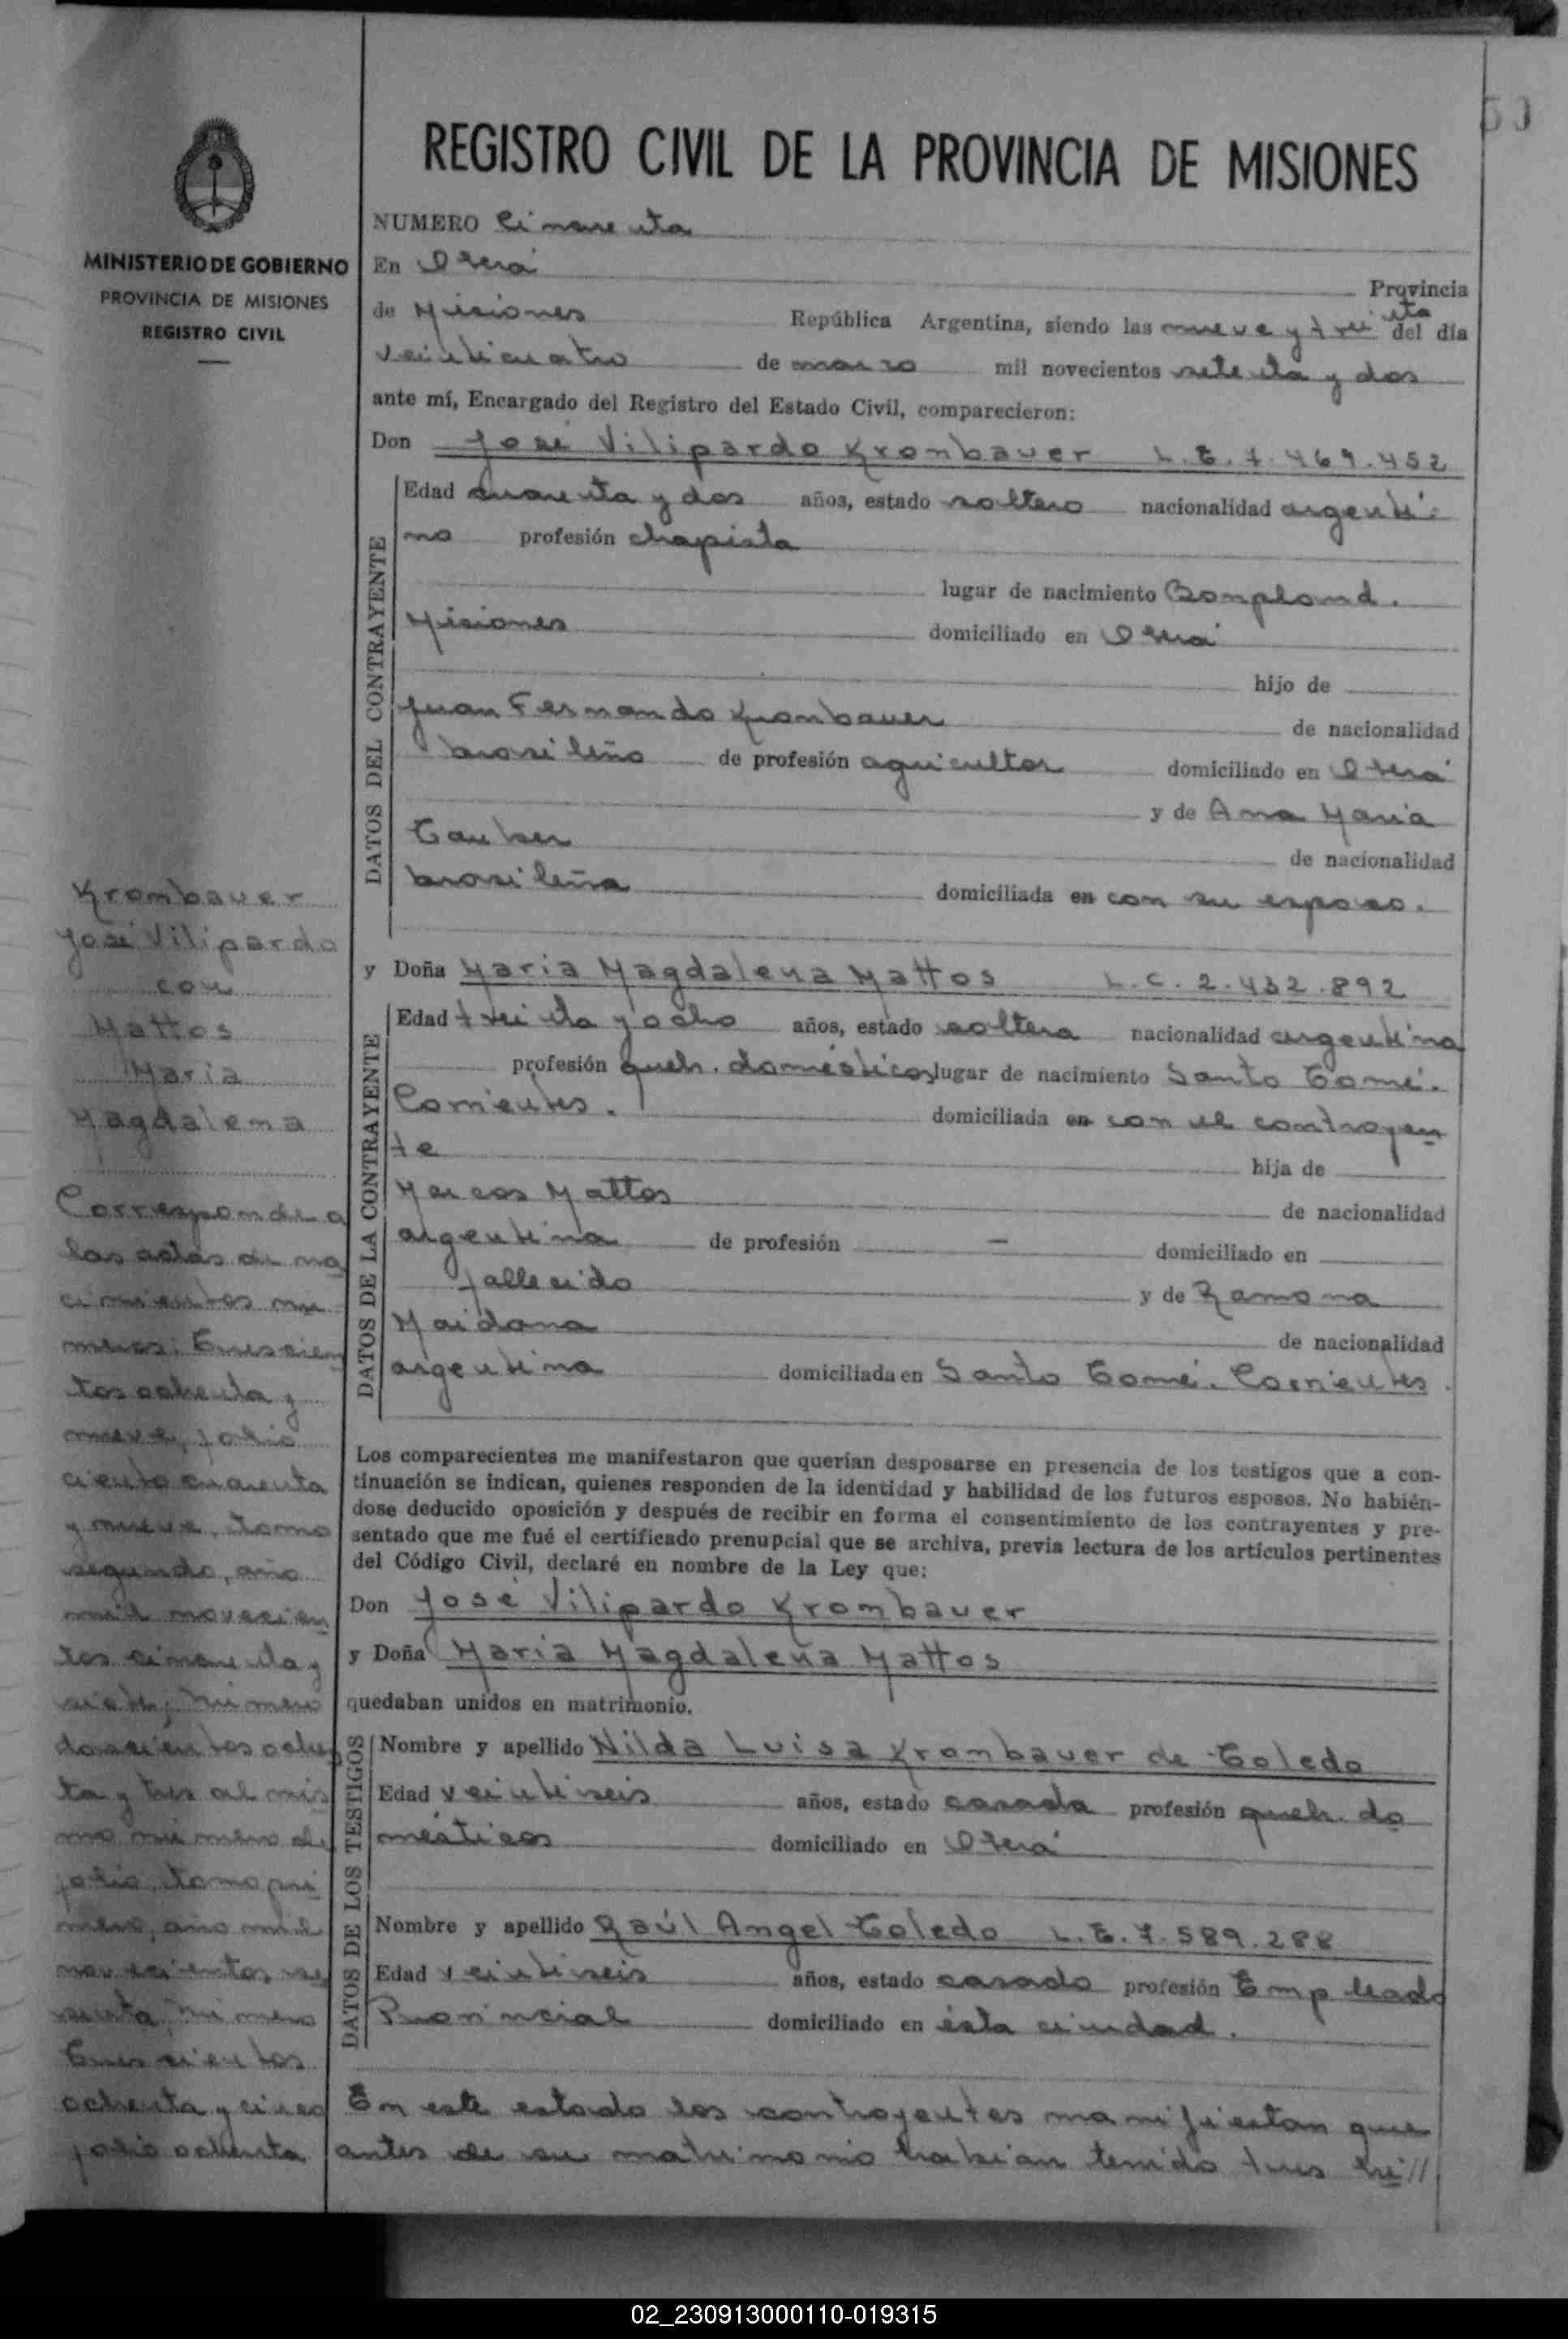 50
REGISTRO CIVIL DE LA PROVINCIA DE MISIONES
MINISTERIO DE GOBIERNO
PROVINCIA DE MISIONES
REGISTRO CIVIL
NUMERO Cincuenta
En Oberá Provincia
de Misiones República Argentina, siendo las nueve y treinta del día
veinticuatro de marzo mil novecientos setenta y dos
ante mí, Encargado del Registro del Estado Civil, comparecieron:
Don José Vilipardo Krombauer L.E. 7.469.452
DATOS DEL CONTRAYENTE
Edad cuarenta y dos años, estado soltero nacionalidad argenti-
no profesión chapista
lugar de nacimiento Bonpland.
Misiones domiciliado en Oberá
hijo de
Juan Fernando Krombauer de nacionalidad
brasileño de profesión agricultor domiciliado en Oberá
y de Ana María
Tauber de nacionalidad
brasileña domiciliada en con su esposo.
y Doña María Magdalena Mattos L.C. 2.432.892
DATOS DE LA CONTRAYENTE
Edad treinta y ocho años, estado soltera nacionalidad argentina
profesión queh. domésticos lugar de nacimiento Santo Tomé.
Corrientes. domiciliada en con el contrayen
te hija de
Marcos Mattos de nacionalidad
argentina de profesión — domiciliado en
fallecido y de Ramona
Maidana de nacionalidad
argentina domiciliada en Santo Tomé. Corrientes.
Los comparecientes me manifestaron que querían desposarse en presencia de los testigos que a con-
tinuación se indican, quienes responden de la identidad y habilidad de los futuros esposos. No habién-
dose deducido oposición y después de recibir en forma el consentimiento de los contrayentes y pre-
sentado que me fué el certificado prenupcial que se archiva, previa lectura de los artículos pertinentes
del Código Civil, declaré en nombre de la Ley que:
Don José Vilipardo Krombauer
y Doña María Magdalena Mattos
quedaban unidos en matrimonio.
DATOS DE LOS TESTIGOS
Nombre y apellido Nilda Luisa Krombauer de Toledo
Edad veintiseis años, estado casada profesión queh. do
mésticos domiciliado en Oberá
Nombre y apellido Raúl Angel Toledo L.E. 7.589.288
Edad veintiseis años, estado casado profesión Empleado
Provincial domiciliado en ésta ciudad.
En este estado los contrayentes manifiestan que
antes de su matrimonio habían tenido tres hi//
Krombauer
José Vilipardo
con
Mattos
María
Magdalena
Corresponde a
las actas de na
cimientos nú
meros: Trescien
tos ochenta y
nueve, folio
ciento cuarenta
y nueve, tomo
segundo, año
mil novecien
tos cincuenta y
siete; número
doscientos ochen
ta y tres al mis
mo número de
folio, tomo pri
mero, año mil
novecientos se
senta, número
Trescientos
ochenta y cinco
folio ochenta
02_230913000110-019315